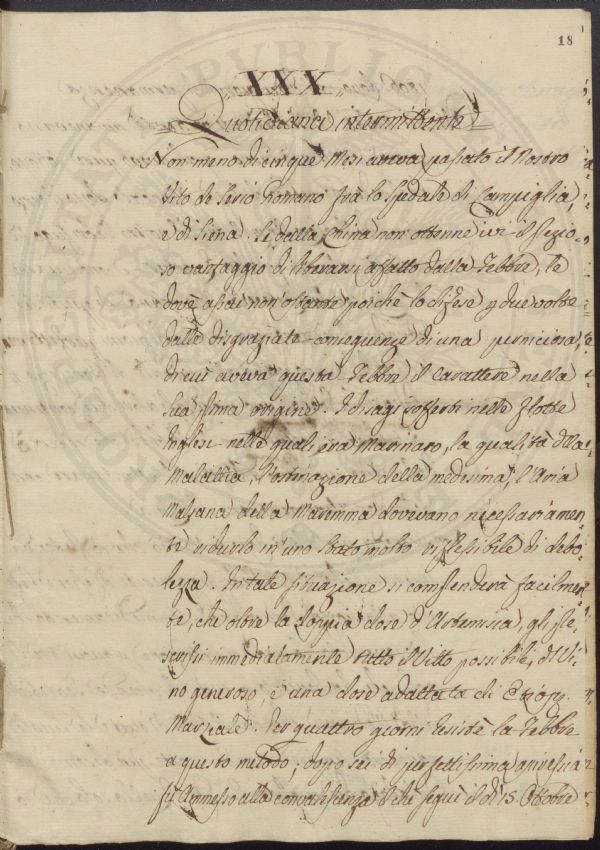 18
XXX
Quotidiana intermittente
Non meno di cinque Mesi aveva passato il Nostro
Vito de Serio Romano frà lo Spedale di Campiglia,
e di Siena. Se dalla China non ottenne ivi il spezio-
so vantaggio di liberarsi affatto dalla Febbre, le
dovè assai non ostante poichè lo difese p due volte
dalle disgraziate conseguenze di una perniciosa,
di cui aveva questa Febbre il Carattere nella
sua prima origine. I disagi sofferti nelle Flotte
Inglesi nelle quali era Marinaro, la qualità della
Malattia, l'ostinazione della medesima, l'Aria
Malsana della Maremma dovevano necessariamen-
te ridurlo in uno stato molto riflessibile di debo-
lezza. In tale situazione si comprenderà facilmen-
te, che oltre la doppia dose d'Artemisia, gli pre-
scrissi immediatamente tutto il Vitto possibile, di Vi-
no generoso, e una dose adattata di Etiop.
Marziale. Per quattro giorni resistè la Febbre
a questo metodo; dopo sei di perfettissima apiressia
fù Ammesso alla convalescenza il che seguì il dì 15. Ottobre